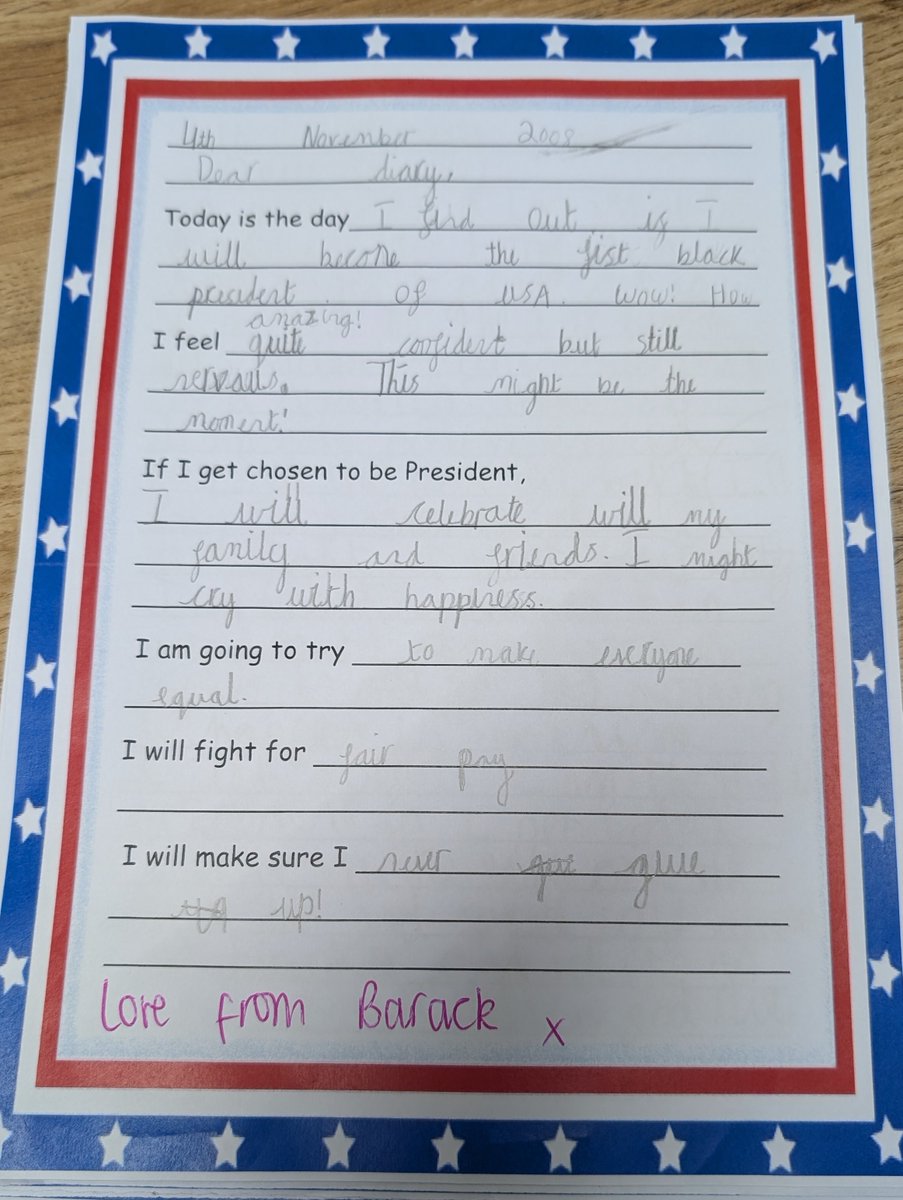 4th November 2008
Dear diary,
Today is the day I find out if I
will become the fist black
president. Of USA. Wow! How
amazing!
I feel quite confident but still
nervous. This might be the
moment!
If I get chosen to be President,
I will celebrate will my
family and friends. I might
cry with happiness.
I am going to try to make everyone
equal.
I will fight for fair pay
I will make sure I never give
up!
Love from Barack x